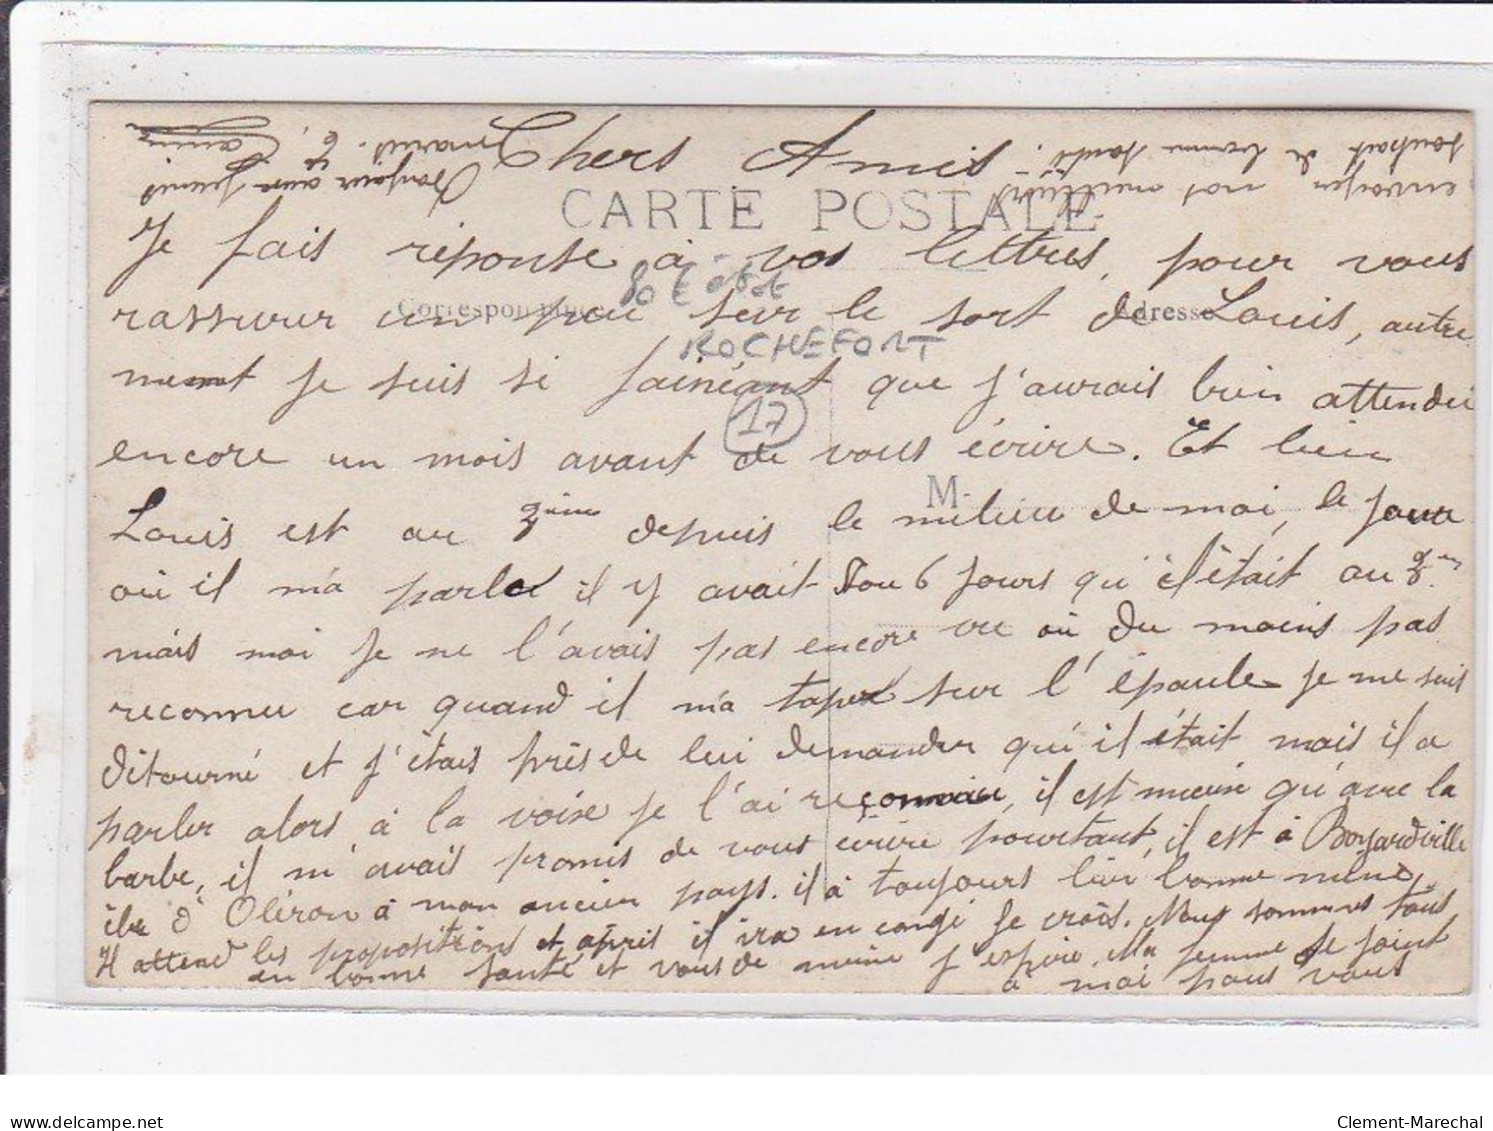 Chers Amis
CARTE POSTALE
Je fais réponse à vos lettres, pour vous
Correspondance
Adresse
rassurer un peu sur le sort de Louis, autre
ROCHEFORT
ment je suis si fainéant que j'aurais bien attendu
17
encore un mois avant de vous écrire. Et bien
M
Louis est au 3ème depuis le milieu de mai, le jour
où il m'a parlé il y avait 5 ou 6 jours qu'il était au 3ème
mais moi je ne l'avais pas encore vu où du moins pas
reconnu car quand il m'a tapé sur l'épaule je me suis
ditourné et j'étais près de lui demander qui il était mais il a
parler alors à la voix je l'ai reconnu, il est mieux qu'avec la
barbe, il m'avais promis de vous écrire pourtant, il est à Boyardville
île d'Oléron à mon ancien pays. il à toujours bien bonne mine,
Il attend les propositions et après il ira en congé je crois. Nous sommes tous
en bonne santé et vous de même j'espère. Ma femme se joint
à moi pour vous
envoyer nos meilleurs
souhait de bonne santé.
Bonjour aux Junis